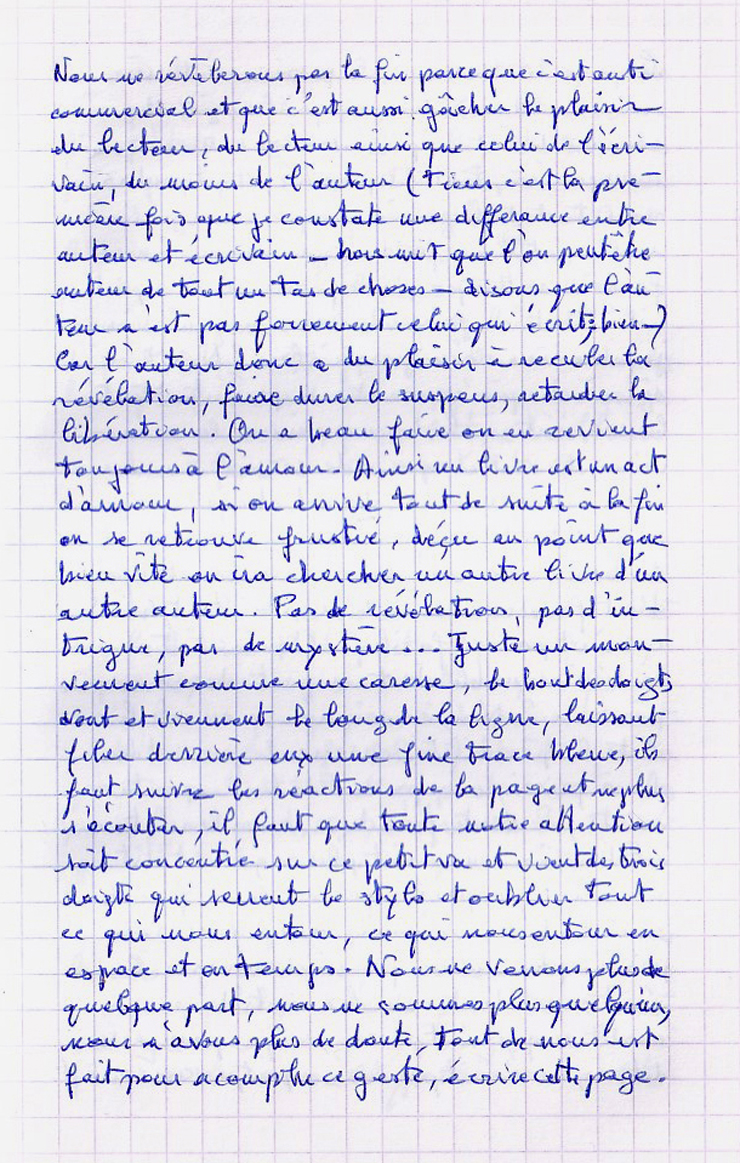 Nous ne révélerons pas la fin parce que c'est anti
commercial et que c'est aussi gâcher le plaisir
du lecteur, du lecteur ainsi que celui de l'écri-
vain, du moins de l'auteur (tiens c'est la pre-
mière fois que je constate une differance entre
auteur et écrivain - hormit que l'on peut être
auteur de tout un tas de choses - disons que l'au
teur n'est pas forcement celui qui écrit bien -)
Car l'auteur donc a du plaisir à reculer la
révélation, faire durer le suspens, retarder la
libération. On a beau faire on en revient
toujours à l'amour. Ainsi un livre est un act
d'amour, si on arrive tout de suite à la fin
on se retrouve frustré, déçu au point que
bien vite on ira chercher un autre livre d'un
autre auteur. Pas de révélation, pas d'in-
trigue, pas de mystère ... Juste un mou-
vement comme une caresse, le bout des doigts
vont et viennent le long de la ligne, laissant
filer derrière eux une fine trace bleue, ils
faut suivre les réactions de la page et ne plus
s'écouter, il faut que toute notre attention
soit concentré sur ce petit va et vient des trois
doigts qui serrent le stylo et oublier tout
ce qui nous entour, ce qui nous entour en
espace et en temps. Nous ne venons plus de
quelque part, nous ne sommes plus quelqu'un,
nous n'avons plus de doute, tout de nous est
fait pour acomplir ce geste, écrire cette page.